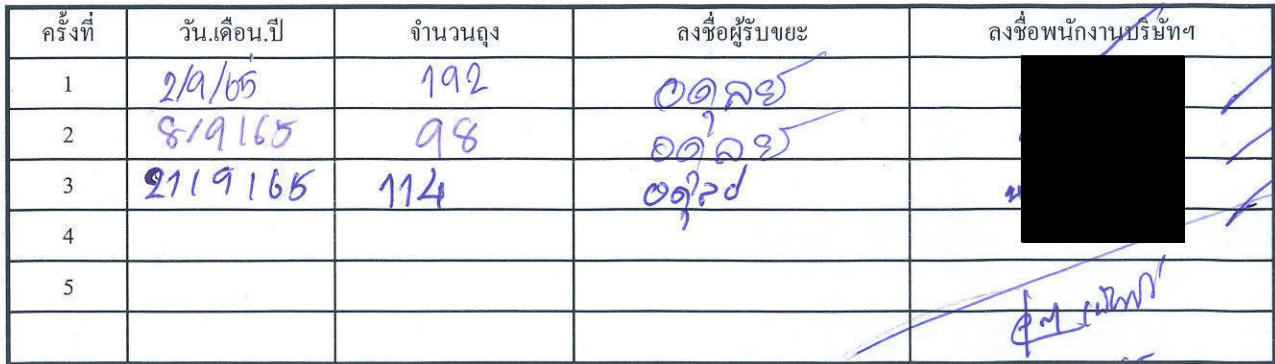 ครั้งที่ วัน.เดือน.ปี จำนวนถุง ลงชื่อผู้รับขยะ ลงชื่อพนักงานบริษัทฯ
1 2/9/65 192 อดุลย์
2 8/9/65 98 อดุลย์
3 21/9/65 114 อดุลย์
4
5